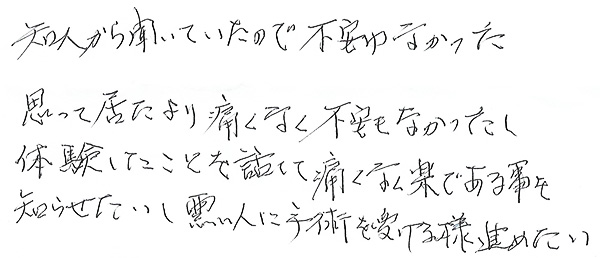 知人から聞いていたので不安はなかった
思って居たより痛くなく不安もなかったし
体験したことを話して痛くなく楽である事を
知らせたいし悪い人に手術を受ける様進めたい